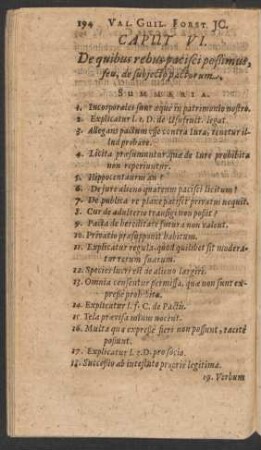 194 VAL. GUIL. FORST. JC.
CAPUT VI.
De quibus rebus pacisci possimus,
seu, de subjecto pactorum.
SUMMARIA.
1. Incorporales sunt æque in patrimonio nostro.
2. Explicatur l. 1. D. de Usufruct. legat.
3. Allegans pactum esse contra Iura, tenetur il-
lud probare.
4. Licita præsumuntur quæ de Iure prohibita
non reperiuntur.
5. Hippocentaurus an?
6. De jure alieno quatenus pacisci licitum?
7. De publica re plane pacisci privatus nequit.
8. Cur de adulterio transigi non possit?
9. Pacta de hereditate futura non valent.
10. Privatio præsupponit habitum.
11. Explicatur regula quod quilibet sit modera-
tur rerum suarum.
12. Species lucri est de alieno largiri.
13. Omnia censentur permissa, quæ non sunt ex-
presse prohibita.
14. Explicatur l. f. C. de Pactis.
15. Tela prævisa minus nocent.
16. Multa quæ expresse fieri non possunt, tacite
possunt.
17. Explicatur l. 7. D. pro socio.
18. Successio ab intestato proprie legitima.
19. Verbum